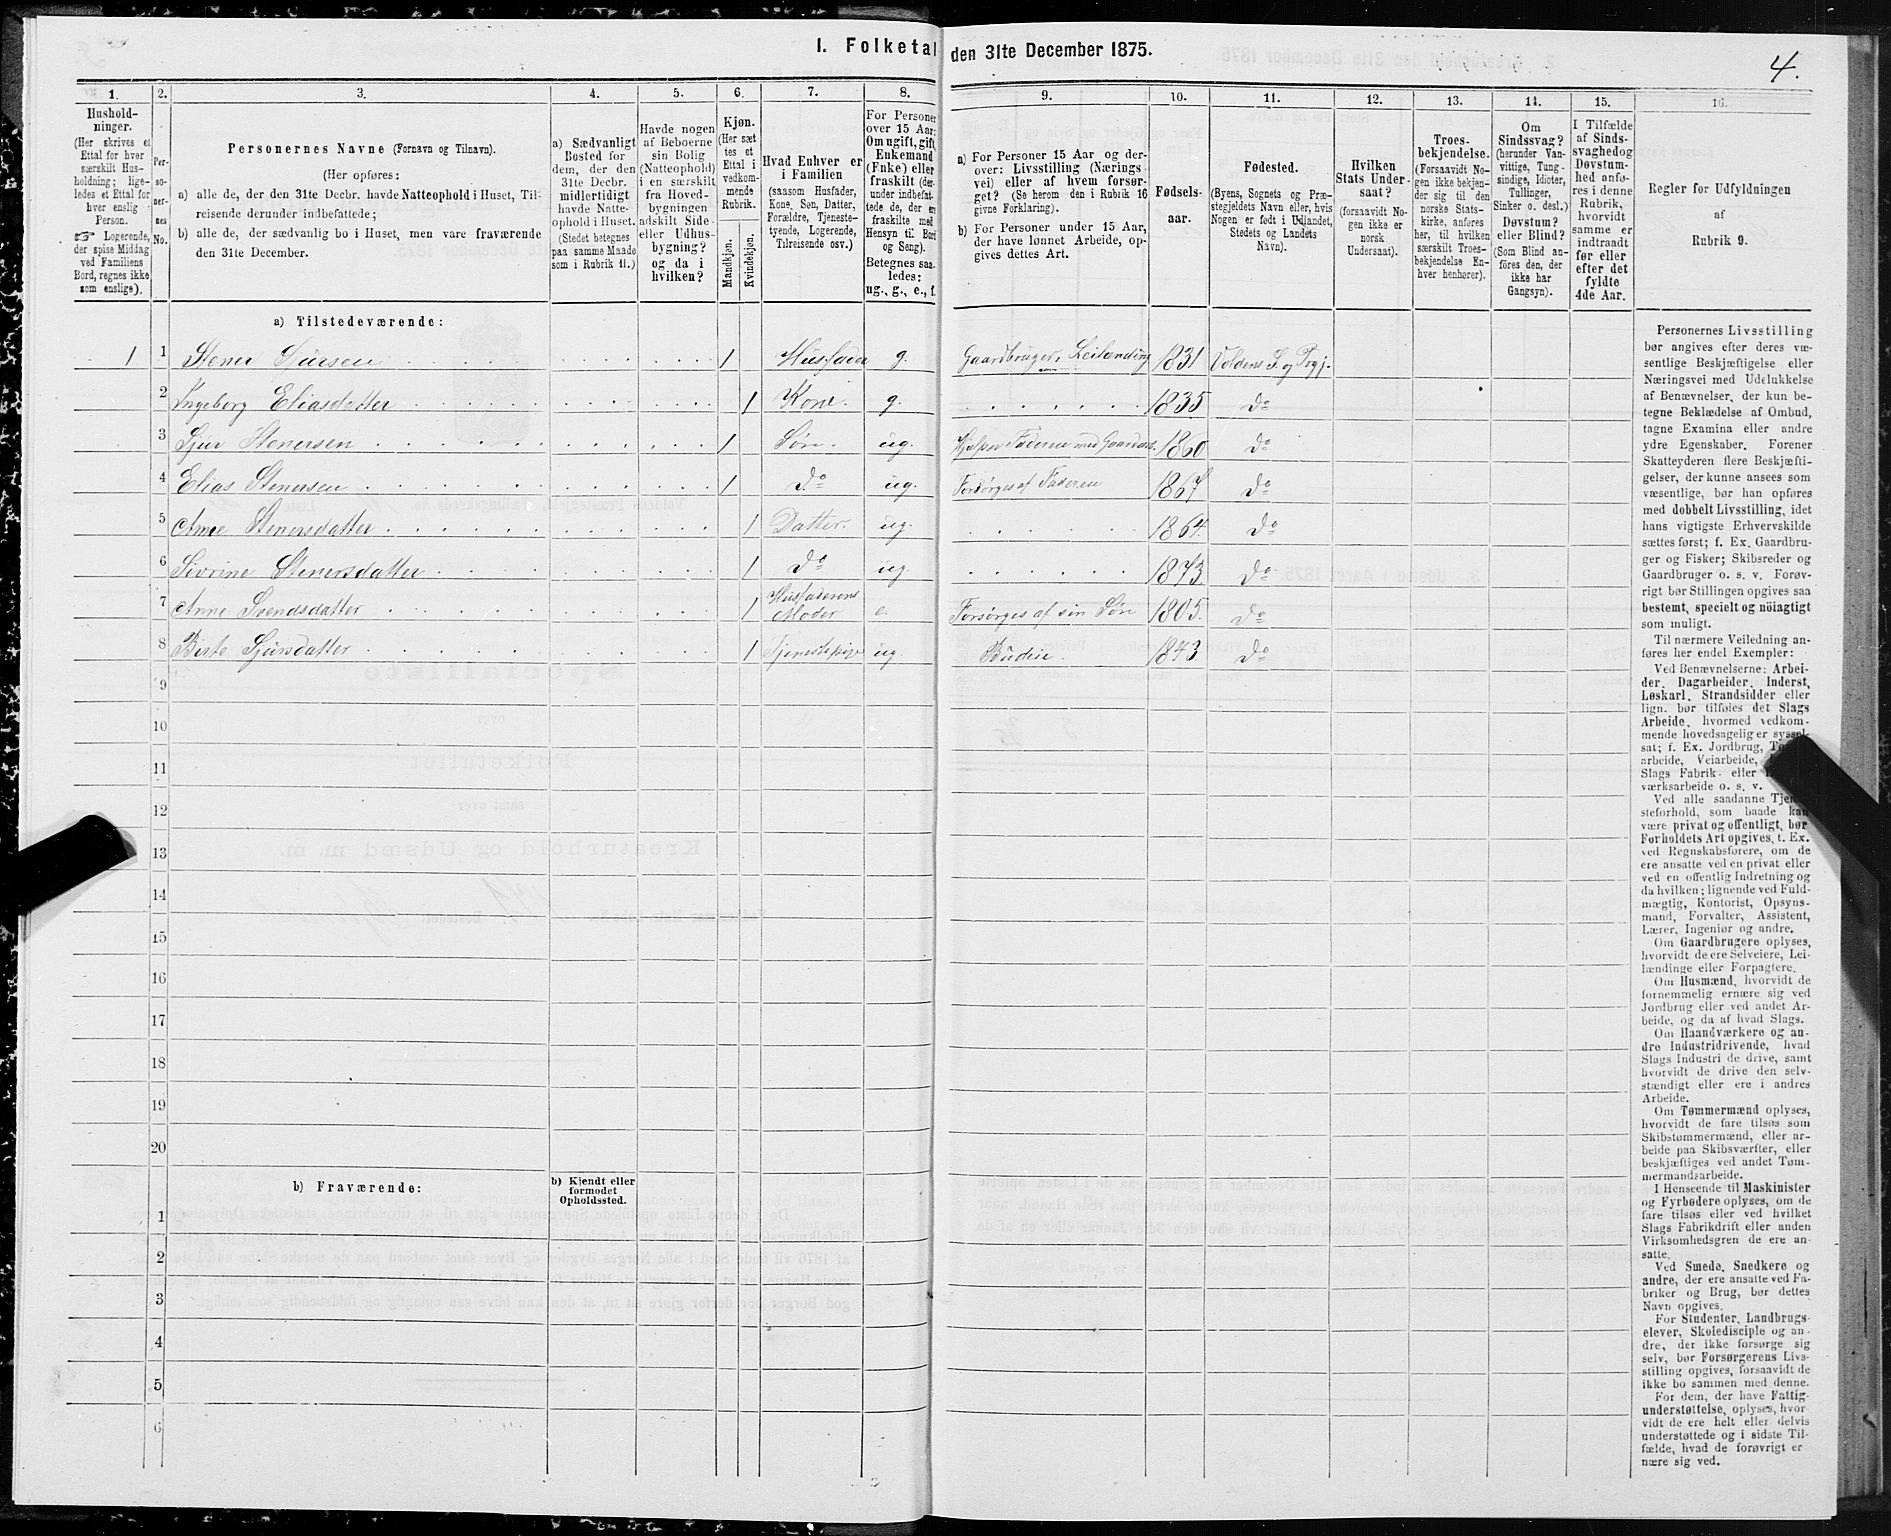 I. Folketal den 31te December 1875.
4.
1.
2.
3.
4.
5.
6.
7.
8.
9.
10.
11.
12.
13.
14.
15.
16.
Hushold-
ninger.
(Her skrives et
Ettal for hver
særskilt Hus-
holdning; lige-
ledes et Ettal for
hver enslig
Person.
☞ Logerende,
der spise Middag
ved Familiens
Bord, regnes ikke
som enslige).
Per-
so-
ner-
nes
No.
Personernes Navne (Fornavn og Tilnavn).
(Her opføres:
a) alle de, der den 31te Decbr. havde Natteophold i Huset, Til-
reisende derunder indbefattede;
b) alle de, der sædvanlig bo i Huset, men vare fraværende
den 31te December.
a) Sædvanligt
Bosted for
dem, der den
31te Decbr.
midlertidigt
havde Natte-
ophold i Huset.
(Stedet betegnes
paa samme Maade
som i Rubrik 11.)
Havde nogen
af Beboerne
sin Bolig
(Natteophold)
i en særskilt
fra Hoved-
bygningen
adskilt Side-
eller Udhus-
bygning?
og da i
hvilken?
Kjøn.
(Her sæt
tes et
Ettal i
vedkom-
mende
Rubrik.
Mandkjøn.
Kvindekjøn.
Hvad Enhver er
i Familien
(saasom Husfader,
Kone, Søn, Datter,
Forældre, Tjeneste-
tyende, Logerende,
Tilreisende osv.)
For Personer
over 15 Aar:
Om ugift, gift,
Enkemand
(Enke) eller
fraskilt (der-
under indbefat-
tede de, der er
fraskilte med
Hensyn til Bord
og Seng).
Betegnes saa-
ledes:
ug., g., e., f.
a) For Personer 15 Aar og der-
over: Livsstilling (Nærings
vei) eller af hvem forsør-
get? (Se herom den i Rubrik 16
givne Forklaring).
b) For Personer under 15 Aar,
der have lønnet Arbeide, op-
gives dettes Art.
Fødsels-
aar.
Fødested.
(Byens, Sognets og Præ-
stegjeldets Navn eller, hvis
Nogen er født i Udlandet,
Stedets og Landets
Navn).
Hvilken
Stats Under-
saat?
(forsaavidt No-
gen ikke er
norsk
Undersaat).
Troes-
bekjendelse.
(Forsaavidt No-
gen ikke bekjen-
der sig til den
norske Stats-
kirke, anføres
her, til hvilken
særskilt Troes-
bekjendelse En-
hver henhører).
Om
Sindssvag?
(herunder Van-
vittige, Tung-
sindige, Idioter,
Tullinger,
Sinker o. desl.)
Døvstum?
eller Blind?
(Som Blind an-
føres den, der
ikke har
Gangsyn).
I Tilfælde
af Sinds-
svaghed og
Døvstum-
hed anfø-
res i denne
Rubrik,
hvorvidt
samme er
indtraadt
før eller
efter det
fyldte
4de Aar.
Regler for Udfyldningen
af
Rubrik 9.
a) Tilstedeværende:
1 1 Stener Sjursen 1 Husfader g. Gaardbruger, Leilending 1831 Voldens S. og Prgj.
2 Ingeborg Eliasdatter 1 Kone. g. 1835 Do
3 Sjur Stenersen 1 Søn. ug. Hjelper Faderen med Gaardsarb. 1860 Do
4 Elias Stenersen 1 Do ug. Forsørges af Faderen 1867 Do
5 Anne Stenersdatter 1 Datter. ug. 1864. Do
6 Sivrine Stenersdatter 1 Do ug. 1873. Do
7 Anne Svendsdatter 1 Husfaderens Moder e. Forsørges af sin Søn 1805. Do
8 Birte Sjursdatter 1 Tjenestepige ug. Budeie. 1843 Do
9
10
11
12
13
14
15
16
17
18
19
20
b) Fraværende:
b) Kjendt eller
formodet
Opholdssted.
1
2
3
4
5
6
Personernes Livsstilling
bør angives efter deres væ-
sentlige Beskjæftigelse eller
Næringsvei med Udelukkelse
af Benævnelser, der kun be-
tegne Beklædelse af Ombud,
tagne Examina eller andre
ydre Egenskaber. Forener
Skatteyderen flere Beskjæfti-
gelser, der kunne ansees som
væsentlige, bør han opføres
med dobbelt Livsstilling, idet
hans vigtigste Erhvervskilde
sættes først; f. Ex. Gaardbru-
ger og Fisker; Skibsreder og
Gaardbruger o. s. v. Forøv-
rigt bør Stillingen opgives saa
bestemt, specielt og nöiagtigt
som muligt.
Til nærmere Veiledning an-
føres her endel Exempler:
Ved Benævnelserne: Arbei-
der, Dagarbeider, Inderst,
Løskarl, Strandsidder eller
lign. bør tilføies det Slags
Arbeide, hvormed vedkom-
mende hovedsagelig er syssel-
sat; f. Ex. Jordbrug,
arbeide, Veiarbeide,
Slags Fabrik- eller
værksarbeide o. s. v.
Ved alle saadanne Tjene-
steforhold, som baade kan
være privat og offentligt, bør
Forholdets Art opgives, t. Ex.
ved Regnskabsførere, om de
ere ansatte ved en privat eller
ved en offentlig Indretning og
da hvilken; lignende ved Fuld-
mægtig, Kontorist, Opsyns-
mand, Forvalter, Assistent,
Lærer, Ingeniør og andre.
Om Gaardbrugere oplyses,
hvorvidt de ere Selveiere, Lei-
lændinge eller Forpagtere.
Om Husmænd, hvorvidt de
fornemmelig ernære sig ved
Jordbrug eller ved andet Ar-
beide, og da af hvad Slags.
Om Haandværkere og an-
dre Industridrivende, hvad
Slags Industri de drive, samt
hvorvidt de drive den selv-
stændigt eller ere i andres
Arbeide.
Om Tømmermænd oplyses,
hvorvidt de fare tilsøs som
Skibstømmermænd, eller ar-
beide paa Skibsværfter, eller
beskjæftiges ved andet Tøm-
mermandsarbeide.
I Henseende til Maskinister
og Fyrbødere oplyses, om de
fare tilsøs eller ved hvilket
Slags Fabrikdrift eller anden
Virksomhedsgren de ere an-
satte.
Ved Smede, Snedkere og
andre, der ere ansatte ved Fa-
briker og Brug, bør dettes
Navn opgives.
For Studenter, Landbrugs-
elever, Skoledisciple og an-
dre, der ikke forsørge sig
selv, bør Forsørgerens Livs-
stilling opgives, forsaavidt de
ikke bo sammen med denne.
For dem, der have Fattig-
understøttelse, oplyses, hvor-
vidt de ere helt eller delvis
understøttede og i sidste Til-
fælde, hvad de forøvrigt er
nære sig ved.